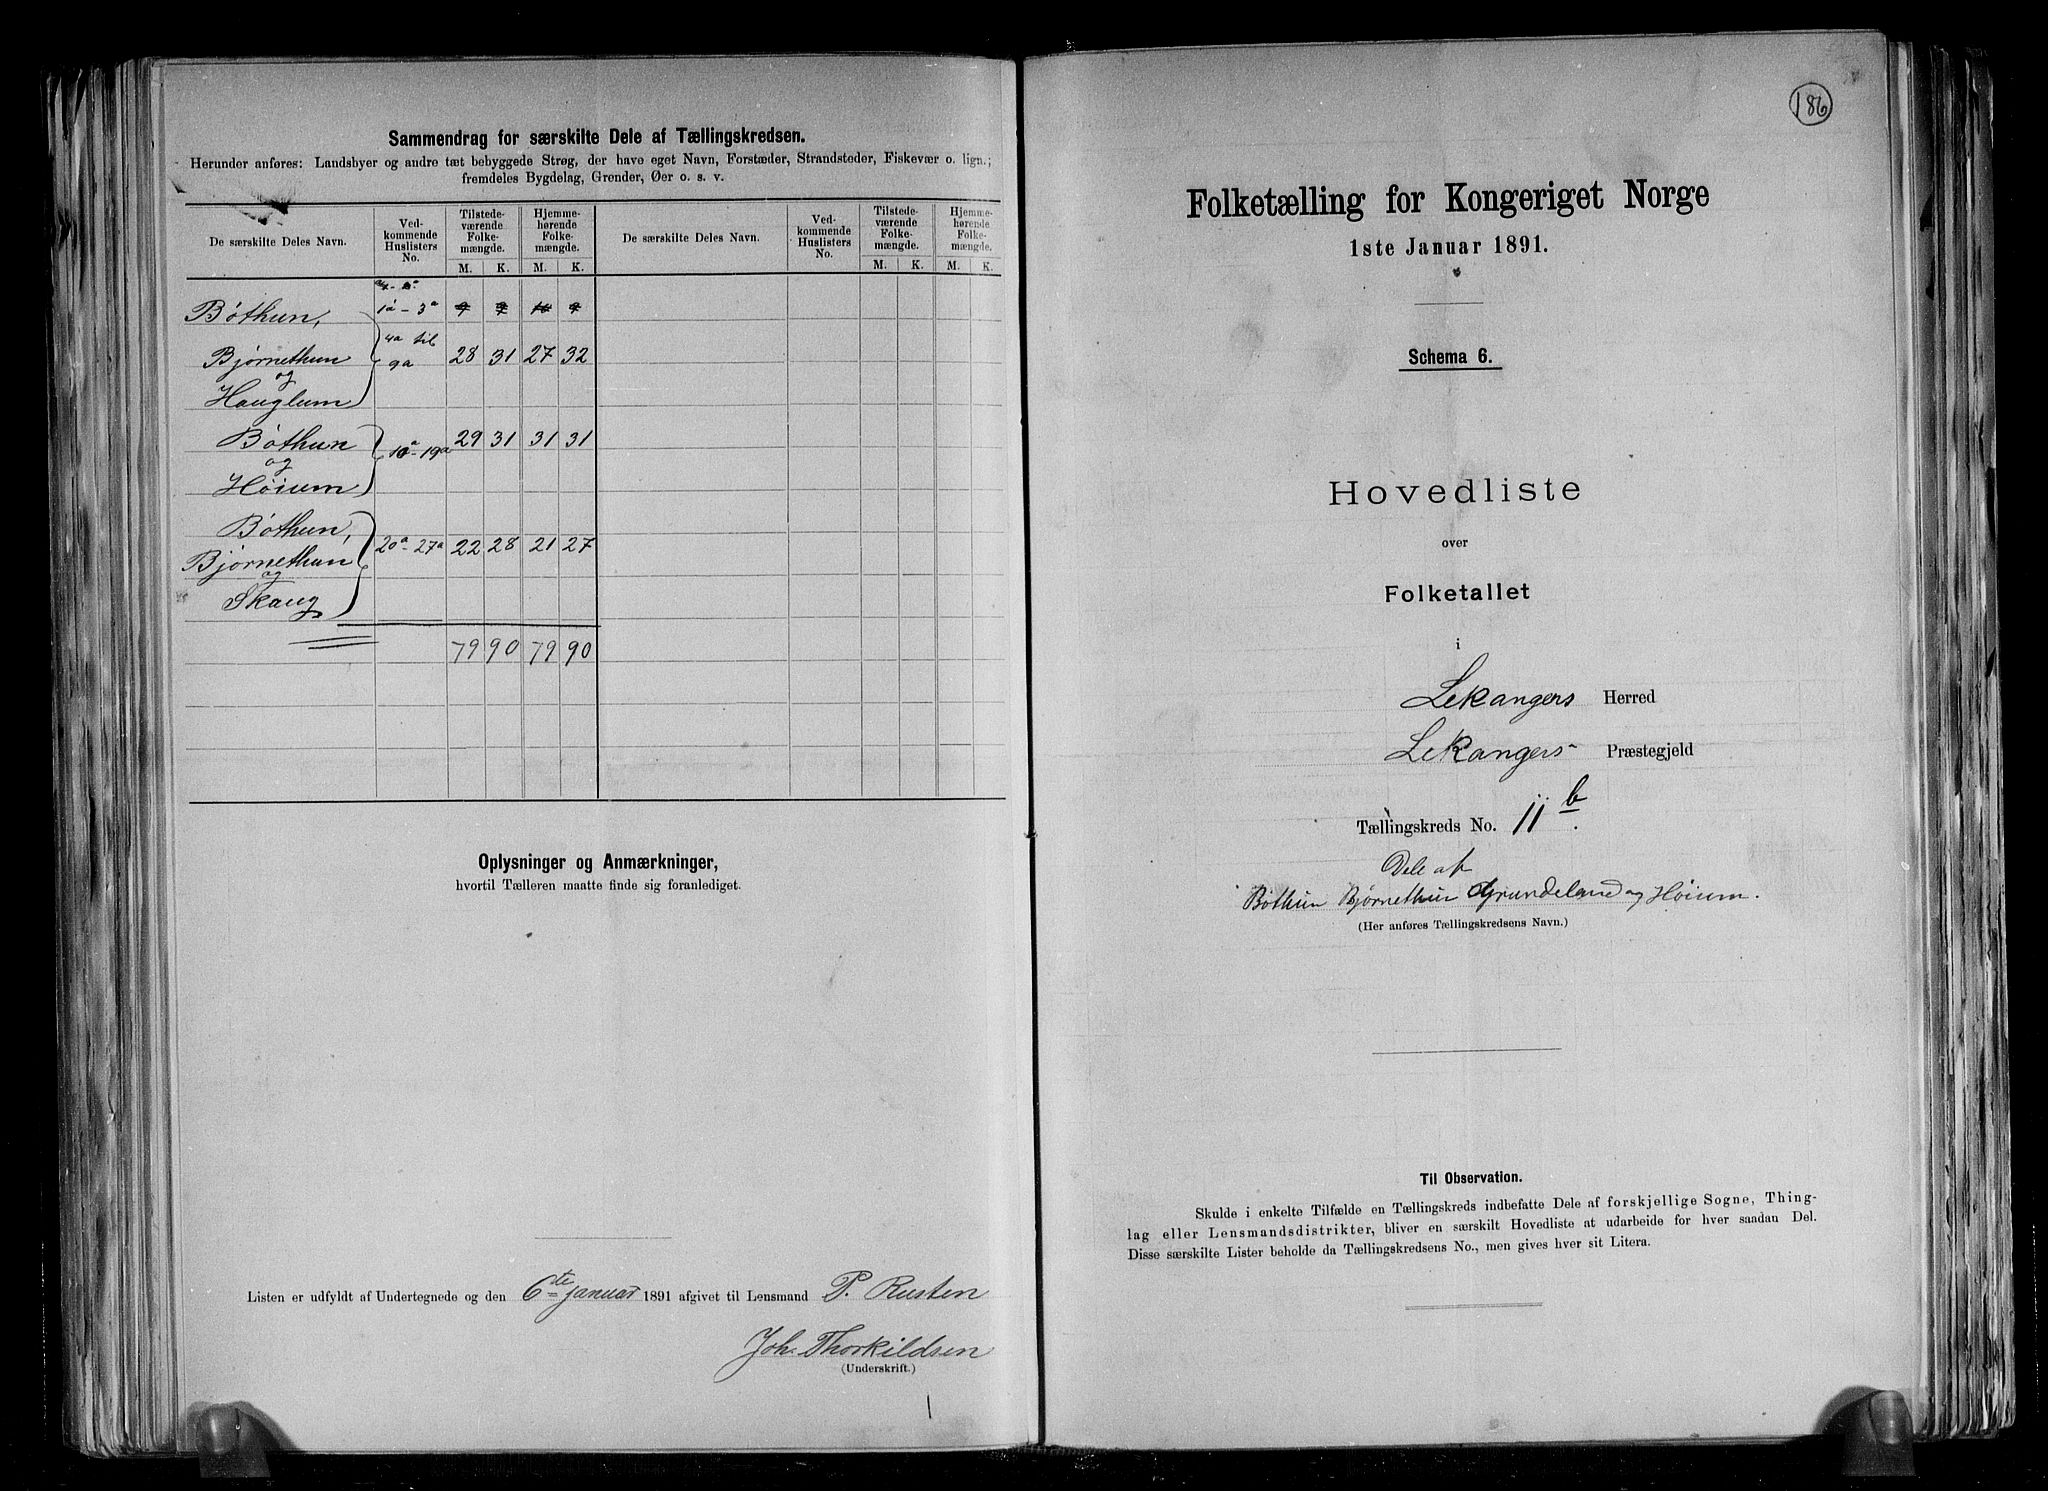 Sammendrag for særskilte Dele af Tællingskredsen.
Herunder anføres: Landsbyer og andre tæt bebyggede Strøg, der have eget Navn, Forstæder, Strandsteder, Fiskevær o. lign.;
fremdeles Bygdelag, Grender, Øer o. s. v.
De særskilte Deles Navn. Ved-kommende Huslisters No. Tilstede-værende Folke-mængde. Hjemme-hørende Folke-mængde. De særskilte Deles Navn. Ved-kommende Huslisters No. Tilstede-værende Folke-mængde. Hjemme-hørende Folke-mængde.
M. K. M. K. M. K. M. K.
Bóthun, 1a - 3a 9 7 10 7
4a til
Bjørnethun 9a 28 31 27 32
og
Hauglum
Bóthun 29 31 31 31
og 10a - 19a
Hóium
Bóthun,
20a - 27a 22 28 21 27
Bjørnethun
og
Skaug
79 90 79 90
Oplysninger og Anmærkninger,
hvortil Tælleren maatte finde sig foranlediget.
Listen er udfyldt af Undertegnede og den 6te januar 1891 afgivet til Lensmand P. Rusten
Joh. Thorkildsen
(Underskrift.)
186
Folketælling for Kongeriget Norge
1ste Januar 1891.
Schema 6.
Hovedliste
over
Folketallet
i
Lekangers Herred
Lekangers- Præstegjeld
Tællingskreds No. 11b.
Dele af
Bóthun Bjørnethun Grundeland og Hóium.
(Her anføres Tællingskredsens Navn.)
Til Observation.
Skulde i enkelte Tilfælde en Tællingskreds indbefatte Dele af forskjellige Sogne, Thing-
lag eller Lensmandsdistrikter, bliver en særskilt Hovedliste at udarbeide for hver saadan Del.
Disse særskilte Lister beholde da Tællingskredsens No., men gives hver sit Litera.